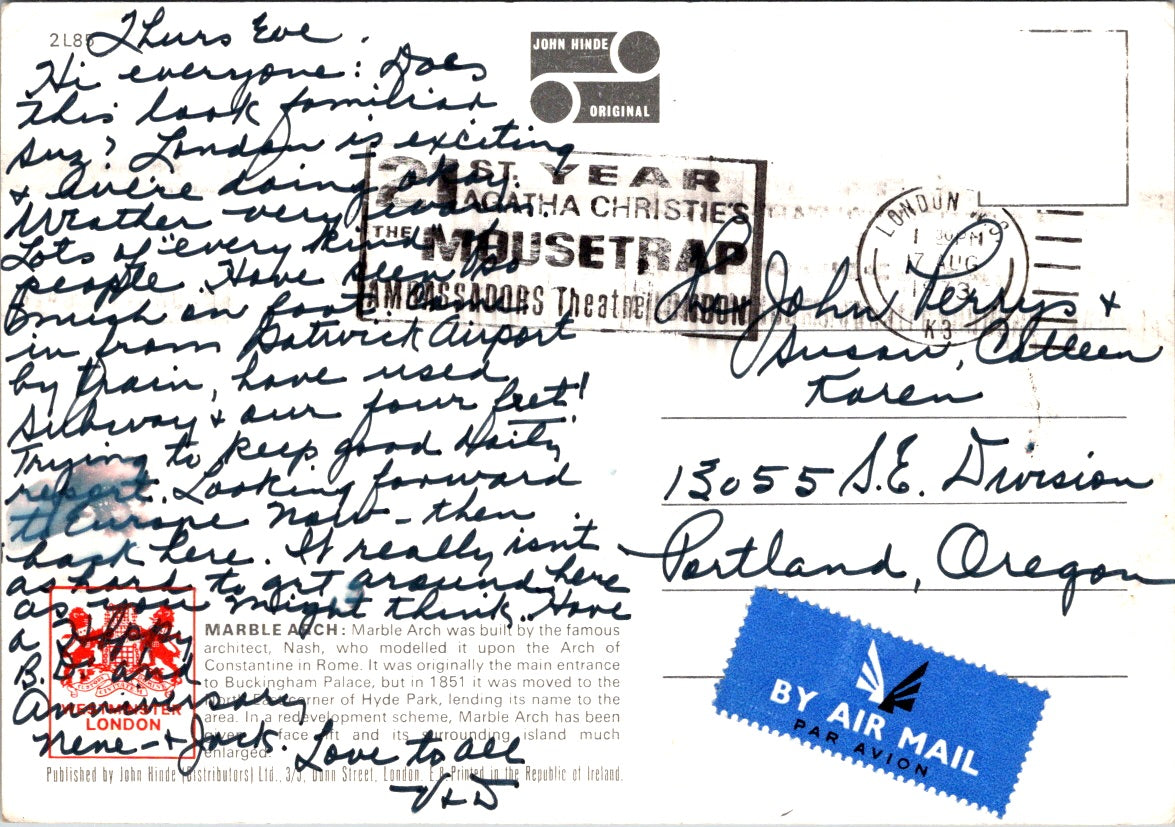 2L85
Thurs Eve.
Hi everyone: Does
this look familiar
Suz? London is exciting
& we're doing okay.
Weather very warm.
Lots of "every kind" of
people. Have seen so
much on foot. Came
in from Gatwick Airport
by train, have used
subway & our four feet!
Trying to keep good daily
report. Looking forward
to Europe now - then
back here. It really isn't
as hard to get around here
as you might think. Have
a Happy
B.D. and
Anniversary
Nene - & Jack. Love to all
V & D
JOHN HINDE
ORIGINAL
21ST. YEAR
AGATHA CHRISTIE'S
THE MOUSETRAP
AMBASSADORS Theatre LONDON
LONDON
1 30PM
17 AUG
1973
K3
John Perrys &
Susan, Colleen
Karen
13055 S.E. Division
Portland, Oregon
BY AIR MAIL
PAR AVION
WESTMINSTER
LONDON
MARBLE ARCH: Marble Arch was built by the famous
architect, Nash, who modelled it upon the Arch of
Constantine in Rome. It was originally the main entrance
to Buckingham Palace, but in 1851 it was moved to the
North East corner of Hyde Park, lending its name to the
area. In a redevelopment scheme, Marble Arch has been
given a face lift and its surrounding island much
enlarged.
Published by John Hinde (Distributors) Ltd., 3/5, Dunn Street, London. E.8 Printed in the Republic of Ireland.